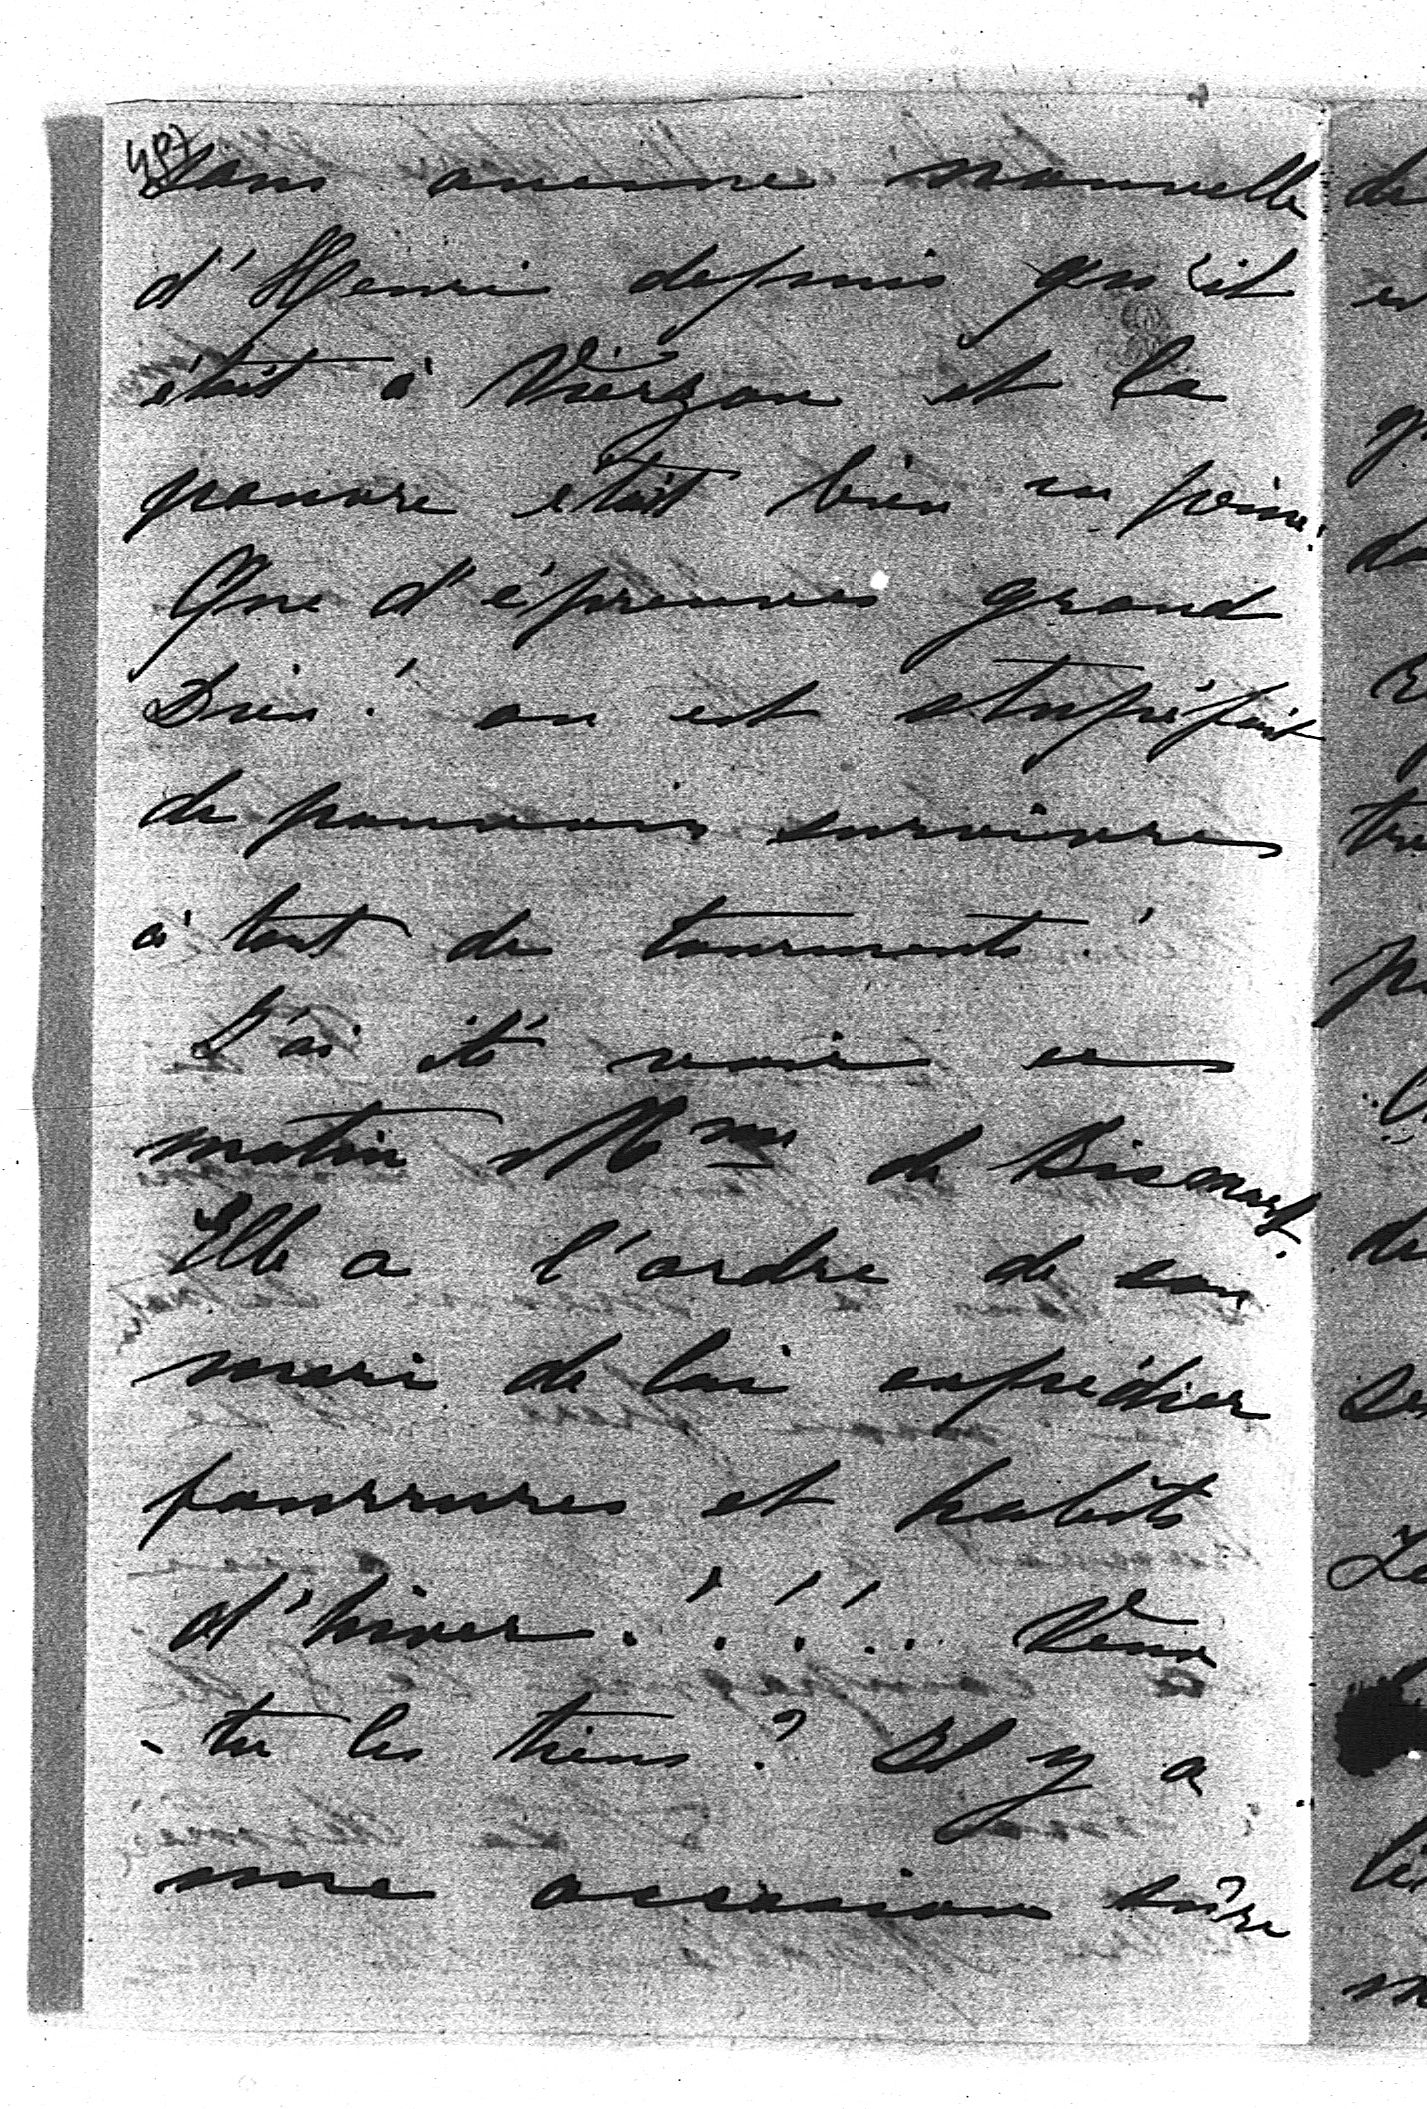 sans aucune nouvelle
d'Henri depuis qu'il
était à Vierzon et la
pauvre était bien en peine.
Que d'épreuves grand
Dieu ! on est stupéfait
de pouvoir survivre
à tant de tourments !
J'ai été voir ce
matin Mme de Bismark.
Elle a l'ordre de son
mari de lui expédier
fourrures et habits
d'hiver. ! ! ! .. Veux
-tu les tiens ? Il y a
une occasion sûre